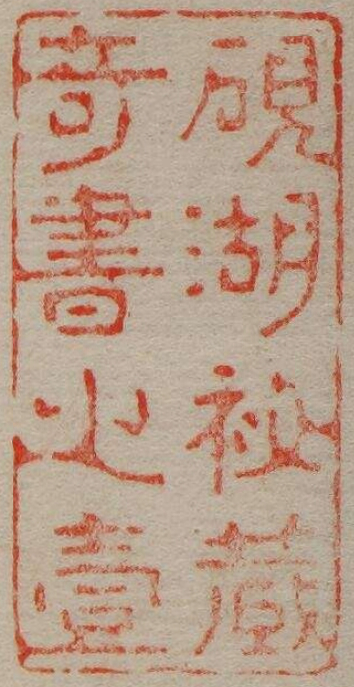 硯湖祕藏
奇書之壹